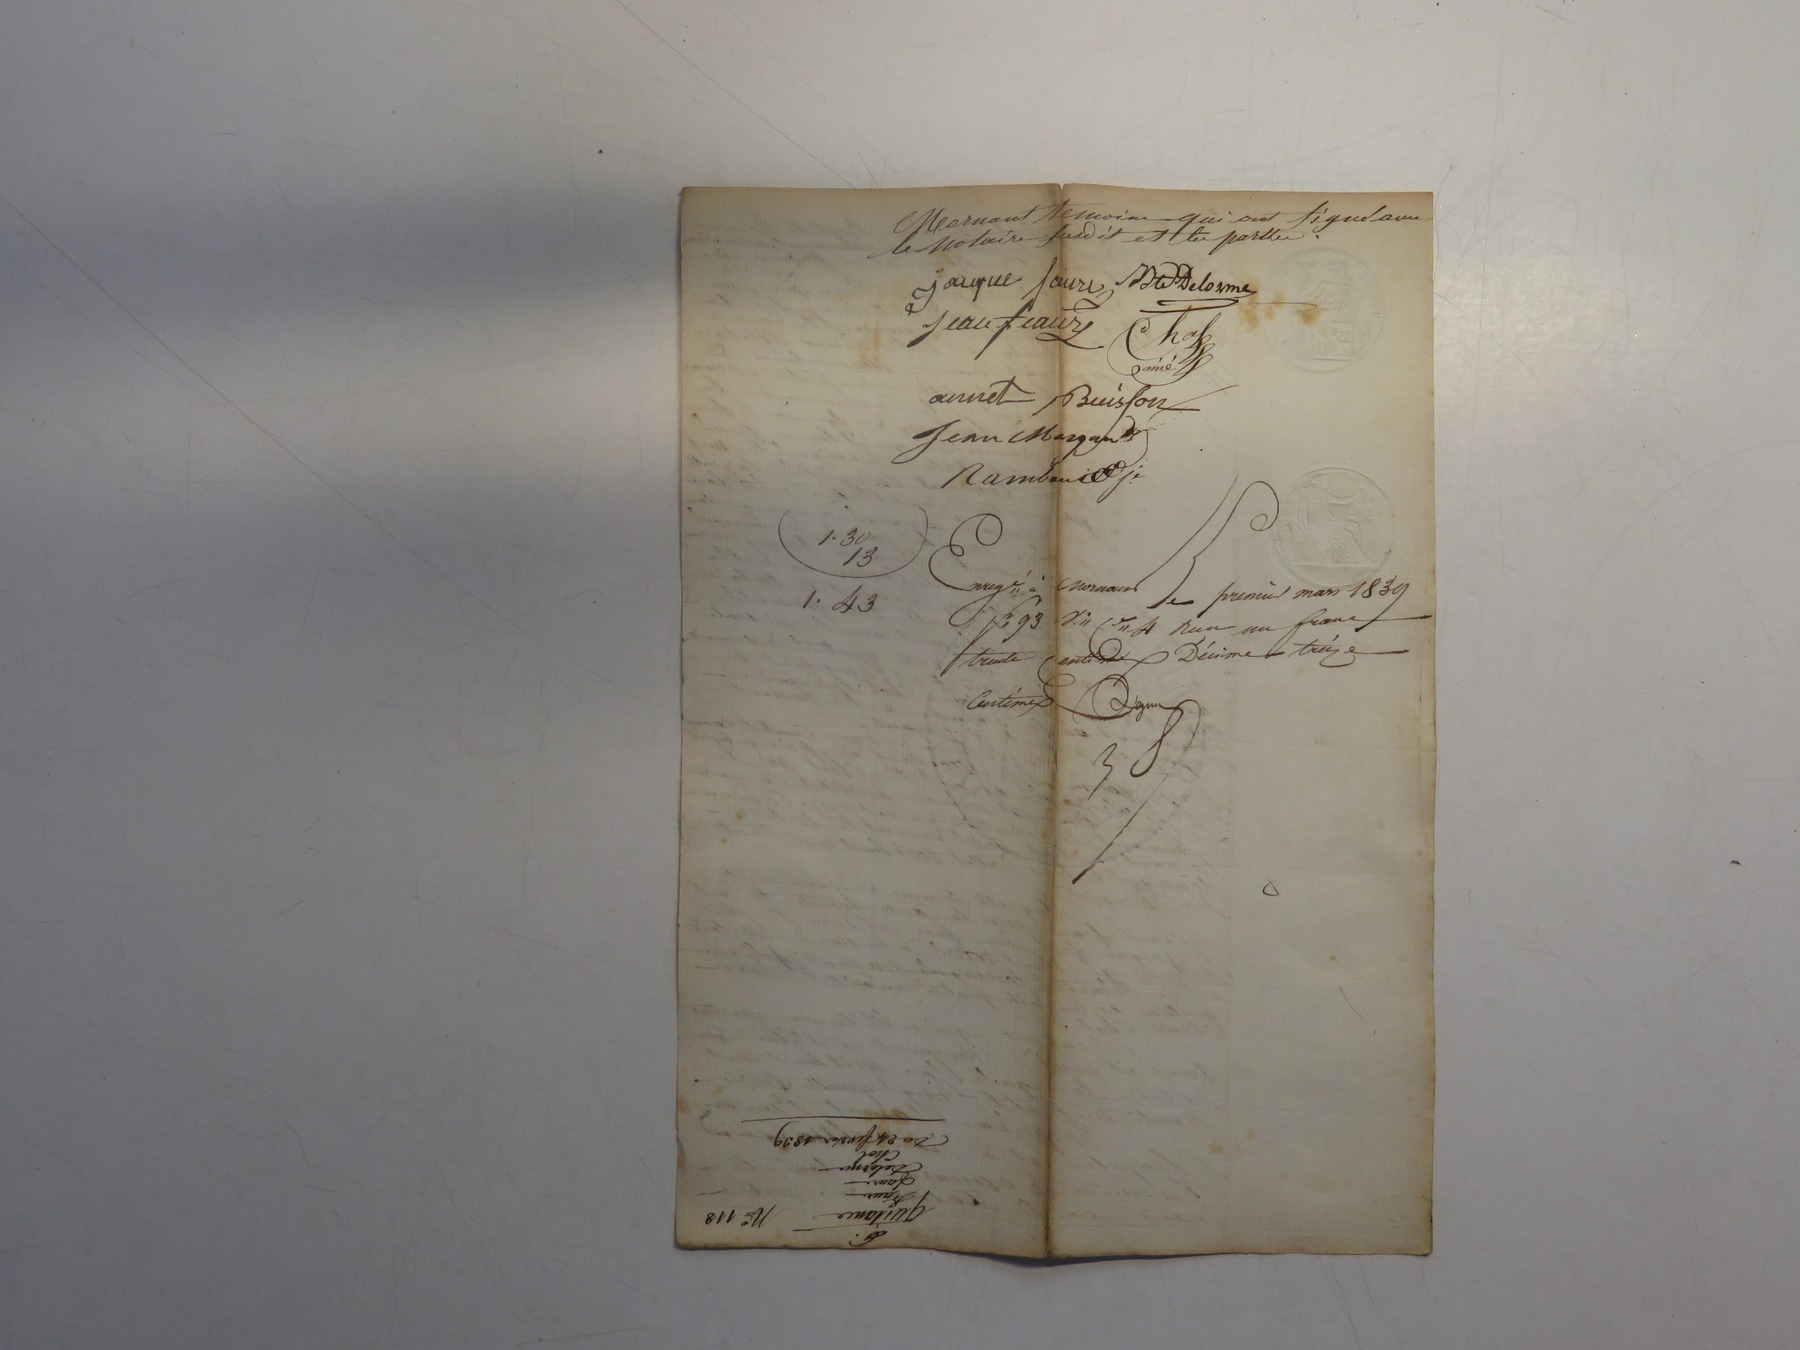 Mornant temoins qui ont signé avec
le Notaire susdit et les parties.
Jacque faure Bte Delorme
Jean feaure Chol
ainé
annet Buisson
Jean Margand
Rambaud
1. 30
13
1. 43
Enregré à Mornant le premier mars 1839
fo 93 Vo Cse 4 Reçu un franc
trente centimes Décime treize
Centimes
No 118
Quittance
faure
Delorme
Chol
Du 24 fevrier 1839